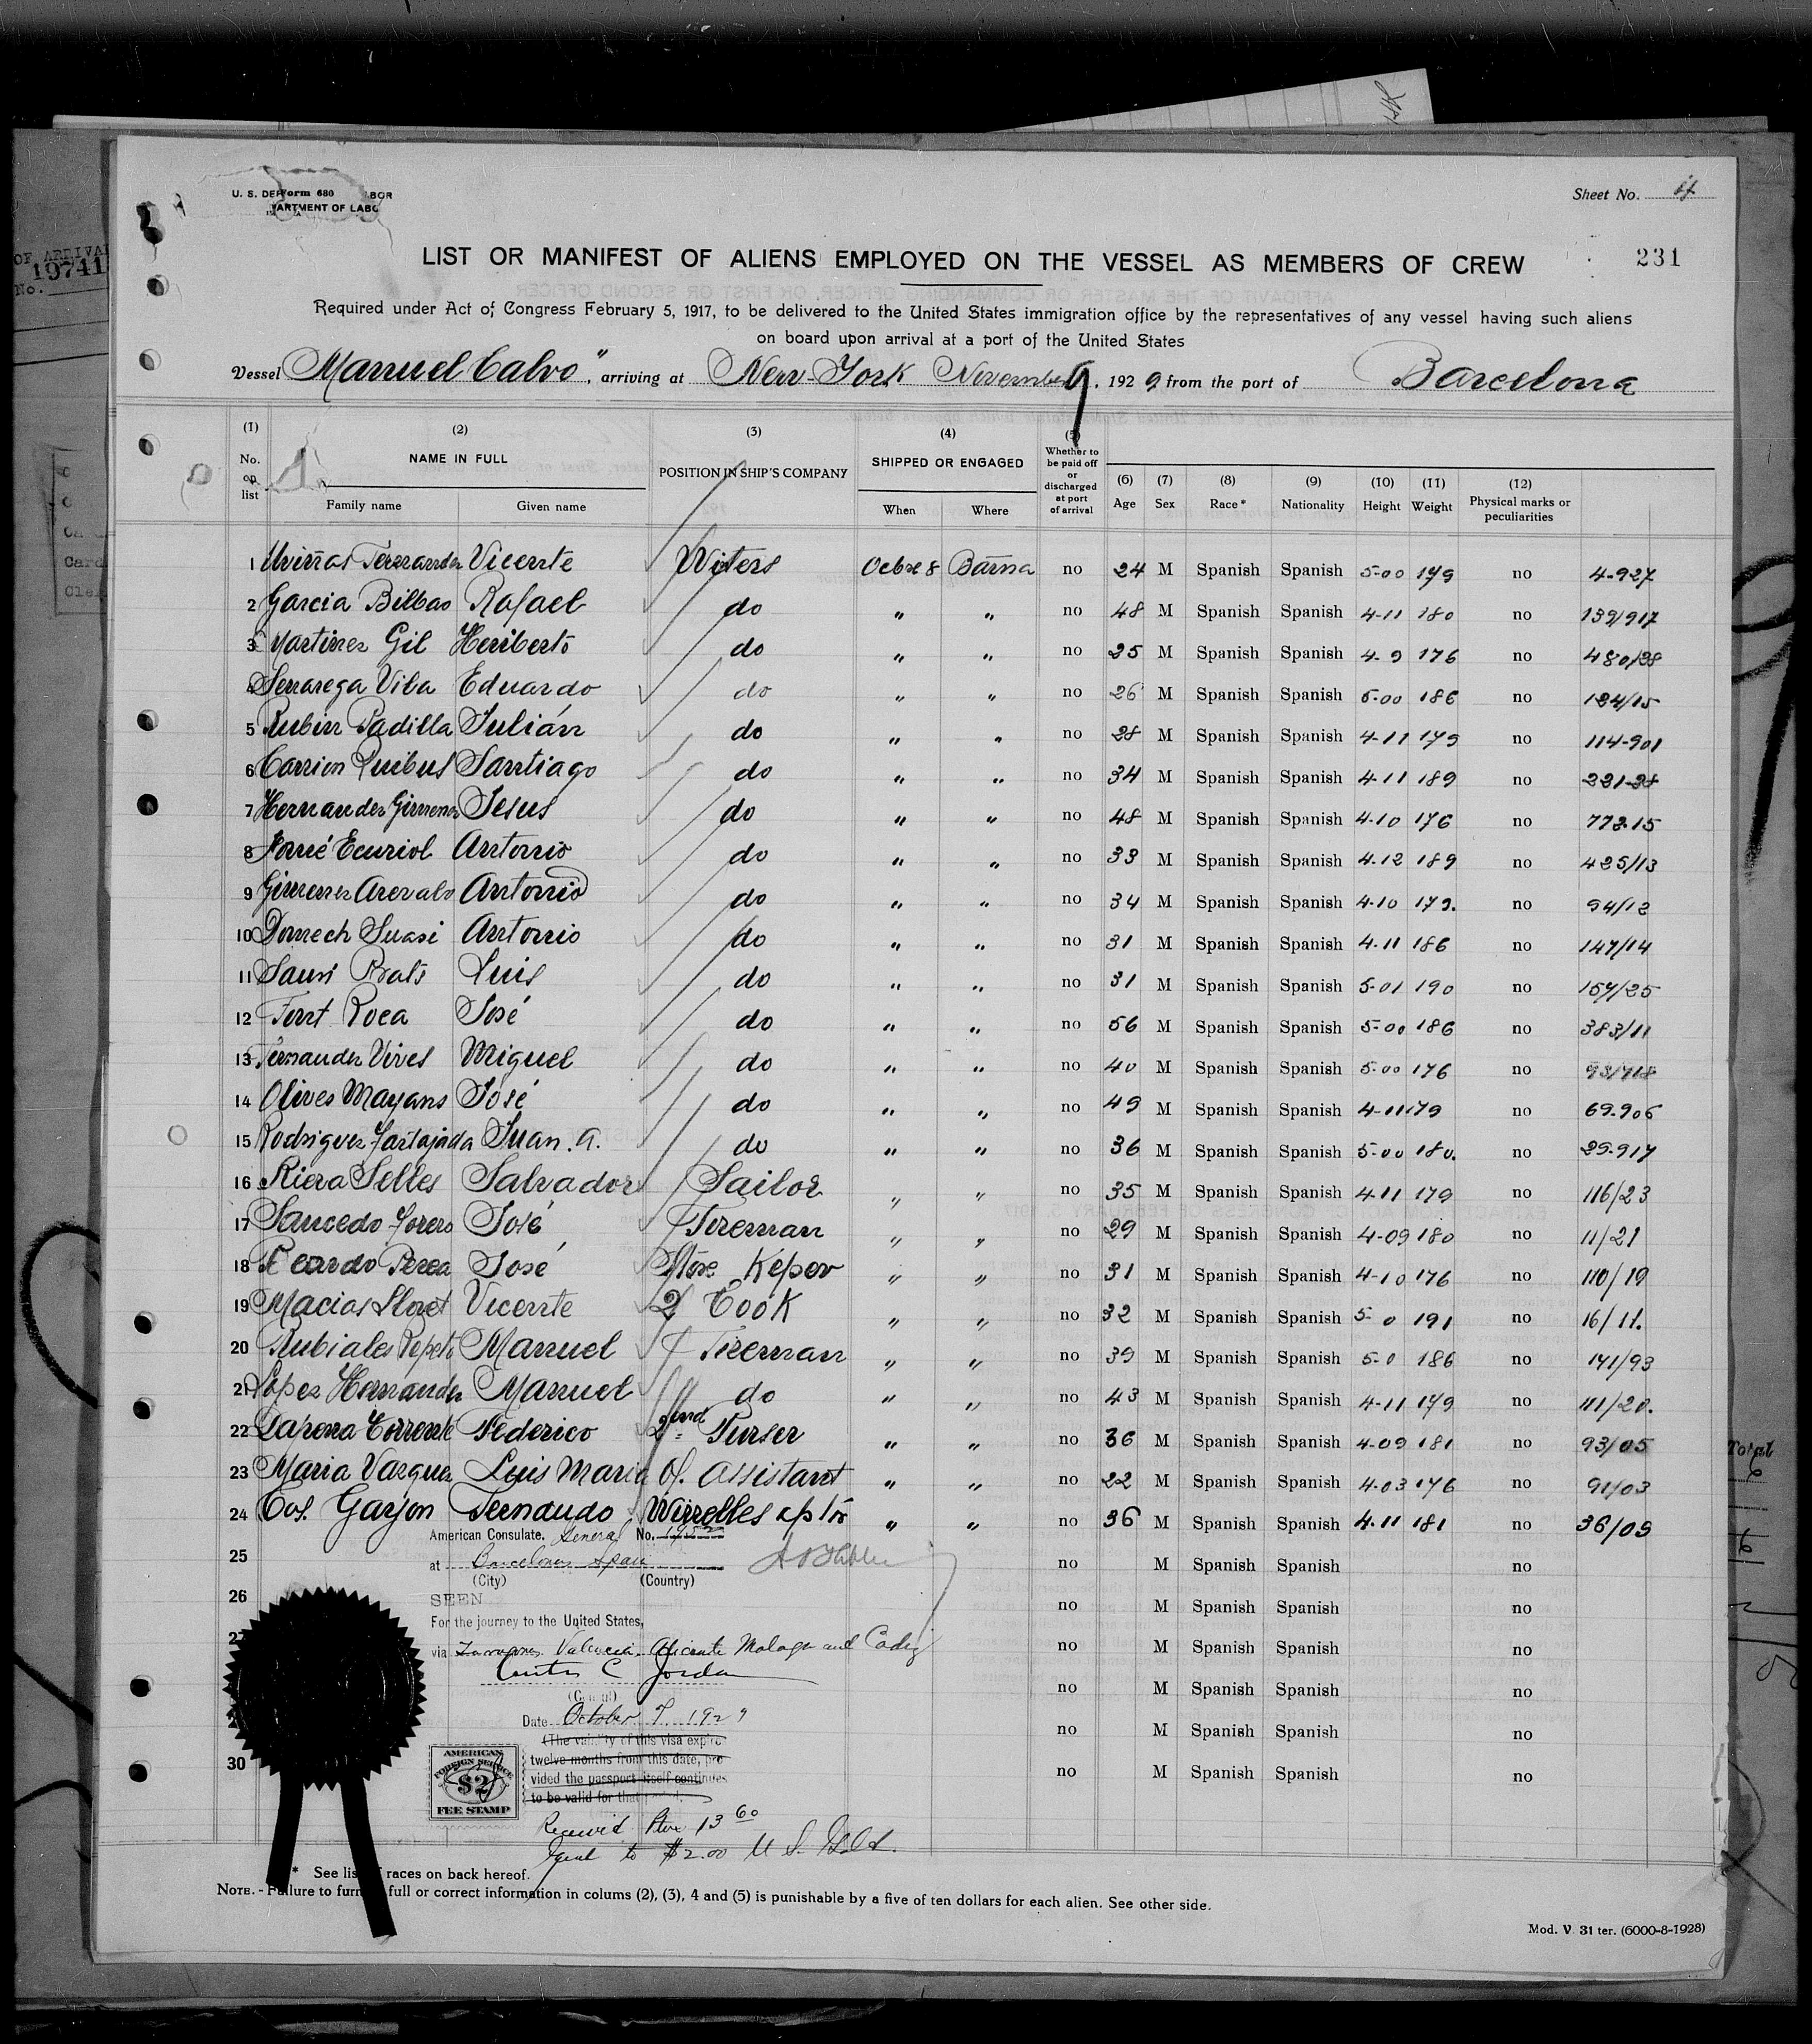 U. S. DE Form 680 ABOR
ARTMENT OF LABO
Sheet No. 4
231
OF ARRIVA
10741
No.
LIST OR MANIFEST OF ALIENS EMPLOYED ON THE VESSEL AS MEMBERS OF CREW
Required under Act of Congress February 5, 1917, to be delivered to the United States immigration office by the representatives of any vessel having such aliens
on board upon arrival at a port of the United States
Vessel Manuel Calvo", arriving at New-York November 9, 1929 from the port of Barcelona
(1) (2) (3) (4) (5)
No. on list NAME IN FULL POSITION IN SHIP'S COMPANY SHIPPED OR ENGAGED Whether to be paid off or discharged at port of arrival
(6) (7) (8) (9) (10) (11) (12)
Family name Given name When Where Age Sex Race* Nationality Height Weight Physical marks or peculiarities
1 Vicente Witers Octbre 8 Barna no 24 M Spanish Spanish 5-00 179 no 4-927
2 Garcia Bilbao Rafael do " " no 48 M Spanish Spanish 4-11 180 no 139/917
3 Martinez Gil Heriberto do " " no 25 M Spanish Spanish 4-9 176 no 480/28
4 Serrarega Vila Eduardo do " " no 26 M Spanish Spanish 5-00 186 no 124/15
5 Rubin Padilla Julián do " " no 28 M Spanish Spanish 4-11 179 no 114-901
6 Carrion Santiago do " " no 34 M Spanish Spanish 4-11 189 no 221-28
7 Hernandez Gimenez Jesus do " " no 48 M Spanish Spanish 4-10 176 no 772-15
8 Ecuriol Antonio do " " no 33 M Spanish Spanish 4-12 189 no 425/13
9 Gimenez Arevalo Antonio do " " no 34 M Spanish Spanish 4-10 179. no 94/12
10 Domech Suasi Antonio do " " no 31 M Spanish Spanish 4-11 186 no 147/14
11 Sauri Prats Luis do " " no 31 M Spanish Spanish 5-01 190 no 157/25
12 Font Roca José do " " no 56 M Spanish Spanish 5-00 186 no 383/11
13 Fernandez Vives Miguel do " " no 40 M Spanish Spanish 5-00 176 no 93/918
14 Olives Mayans José do " " no 49 M Spanish Spanish 4-11 179 no 69-906
15 Rodriguez Juan. A. do " " no 36 M Spanish Spanish 5-00 180. no 29-917
16 Riera Selles Salvador Sailor " " no 35 M Spanish Spanish 4-11 179 no 116/23
17 Saucedo José Fireman " " no 29 M Spanish Spanish 4-09 180 no 11/21
18 Perea José Store Keper " " no 31 M Spanish Spanish 4-10 176 no 110/19
19 Macias Lloret Vicente 2 Cook " " no 32 M Spanish Spanish 5-0 191 no 16/11.
20 Rubiales Repeto Manuel Fireman " " no 39 M Spanish Spanish 5-0 186 no 141/93
21 Lopez Hernandez Manuel do " " no 43 M Spanish Spanish 4-11 179 no 111/20.
22 Lapena Torrente Federico 2nd Purser " " no 36 M Spanish Spanish 4-09 181 no 93/05
23 Maria Vazquez Luis Maria Of. Assistant " " no 22 M Spanish Spanish 4-03 176 no 91/03
24 Cos. Garjon Fernando Wirrelles op/or " " no 36 M Spanish Spanish 4-11 181 no 36/09
American Consulate. General No.
25 no M Spanish Spanish no
at Barcelona Spain
(City) (Country)
26 no M Spanish Spanish no
SEEN
For the journey to the United States,
no M Spanish Spanish no
via Tarragona Valencia. Alicante Malaga and Cadiz
Curtis C Jordan
no M Spanish Spanish no
(Consul)
Date October 9 1929
no M Spanish Spanish no
(The validity of this visa expires
twelve months from this date, pro-
vided the passport itself continues
to be valid for that period.
30 no M Spanish Spanish no
AMERICAN FOREIGN SERVICE
$2
FEE STAMP
Received Ptas 13 60
Equal to $2.00 U S. Gold.
* See list of races on back hereof.
NOTE. - Failure to furnish full or correct information in colums (2), (3), 4 and (5) is punishable by a five of ten dollars for each alien. See other side.
Mod. V 31 ter. (6000-8-1928)
Total